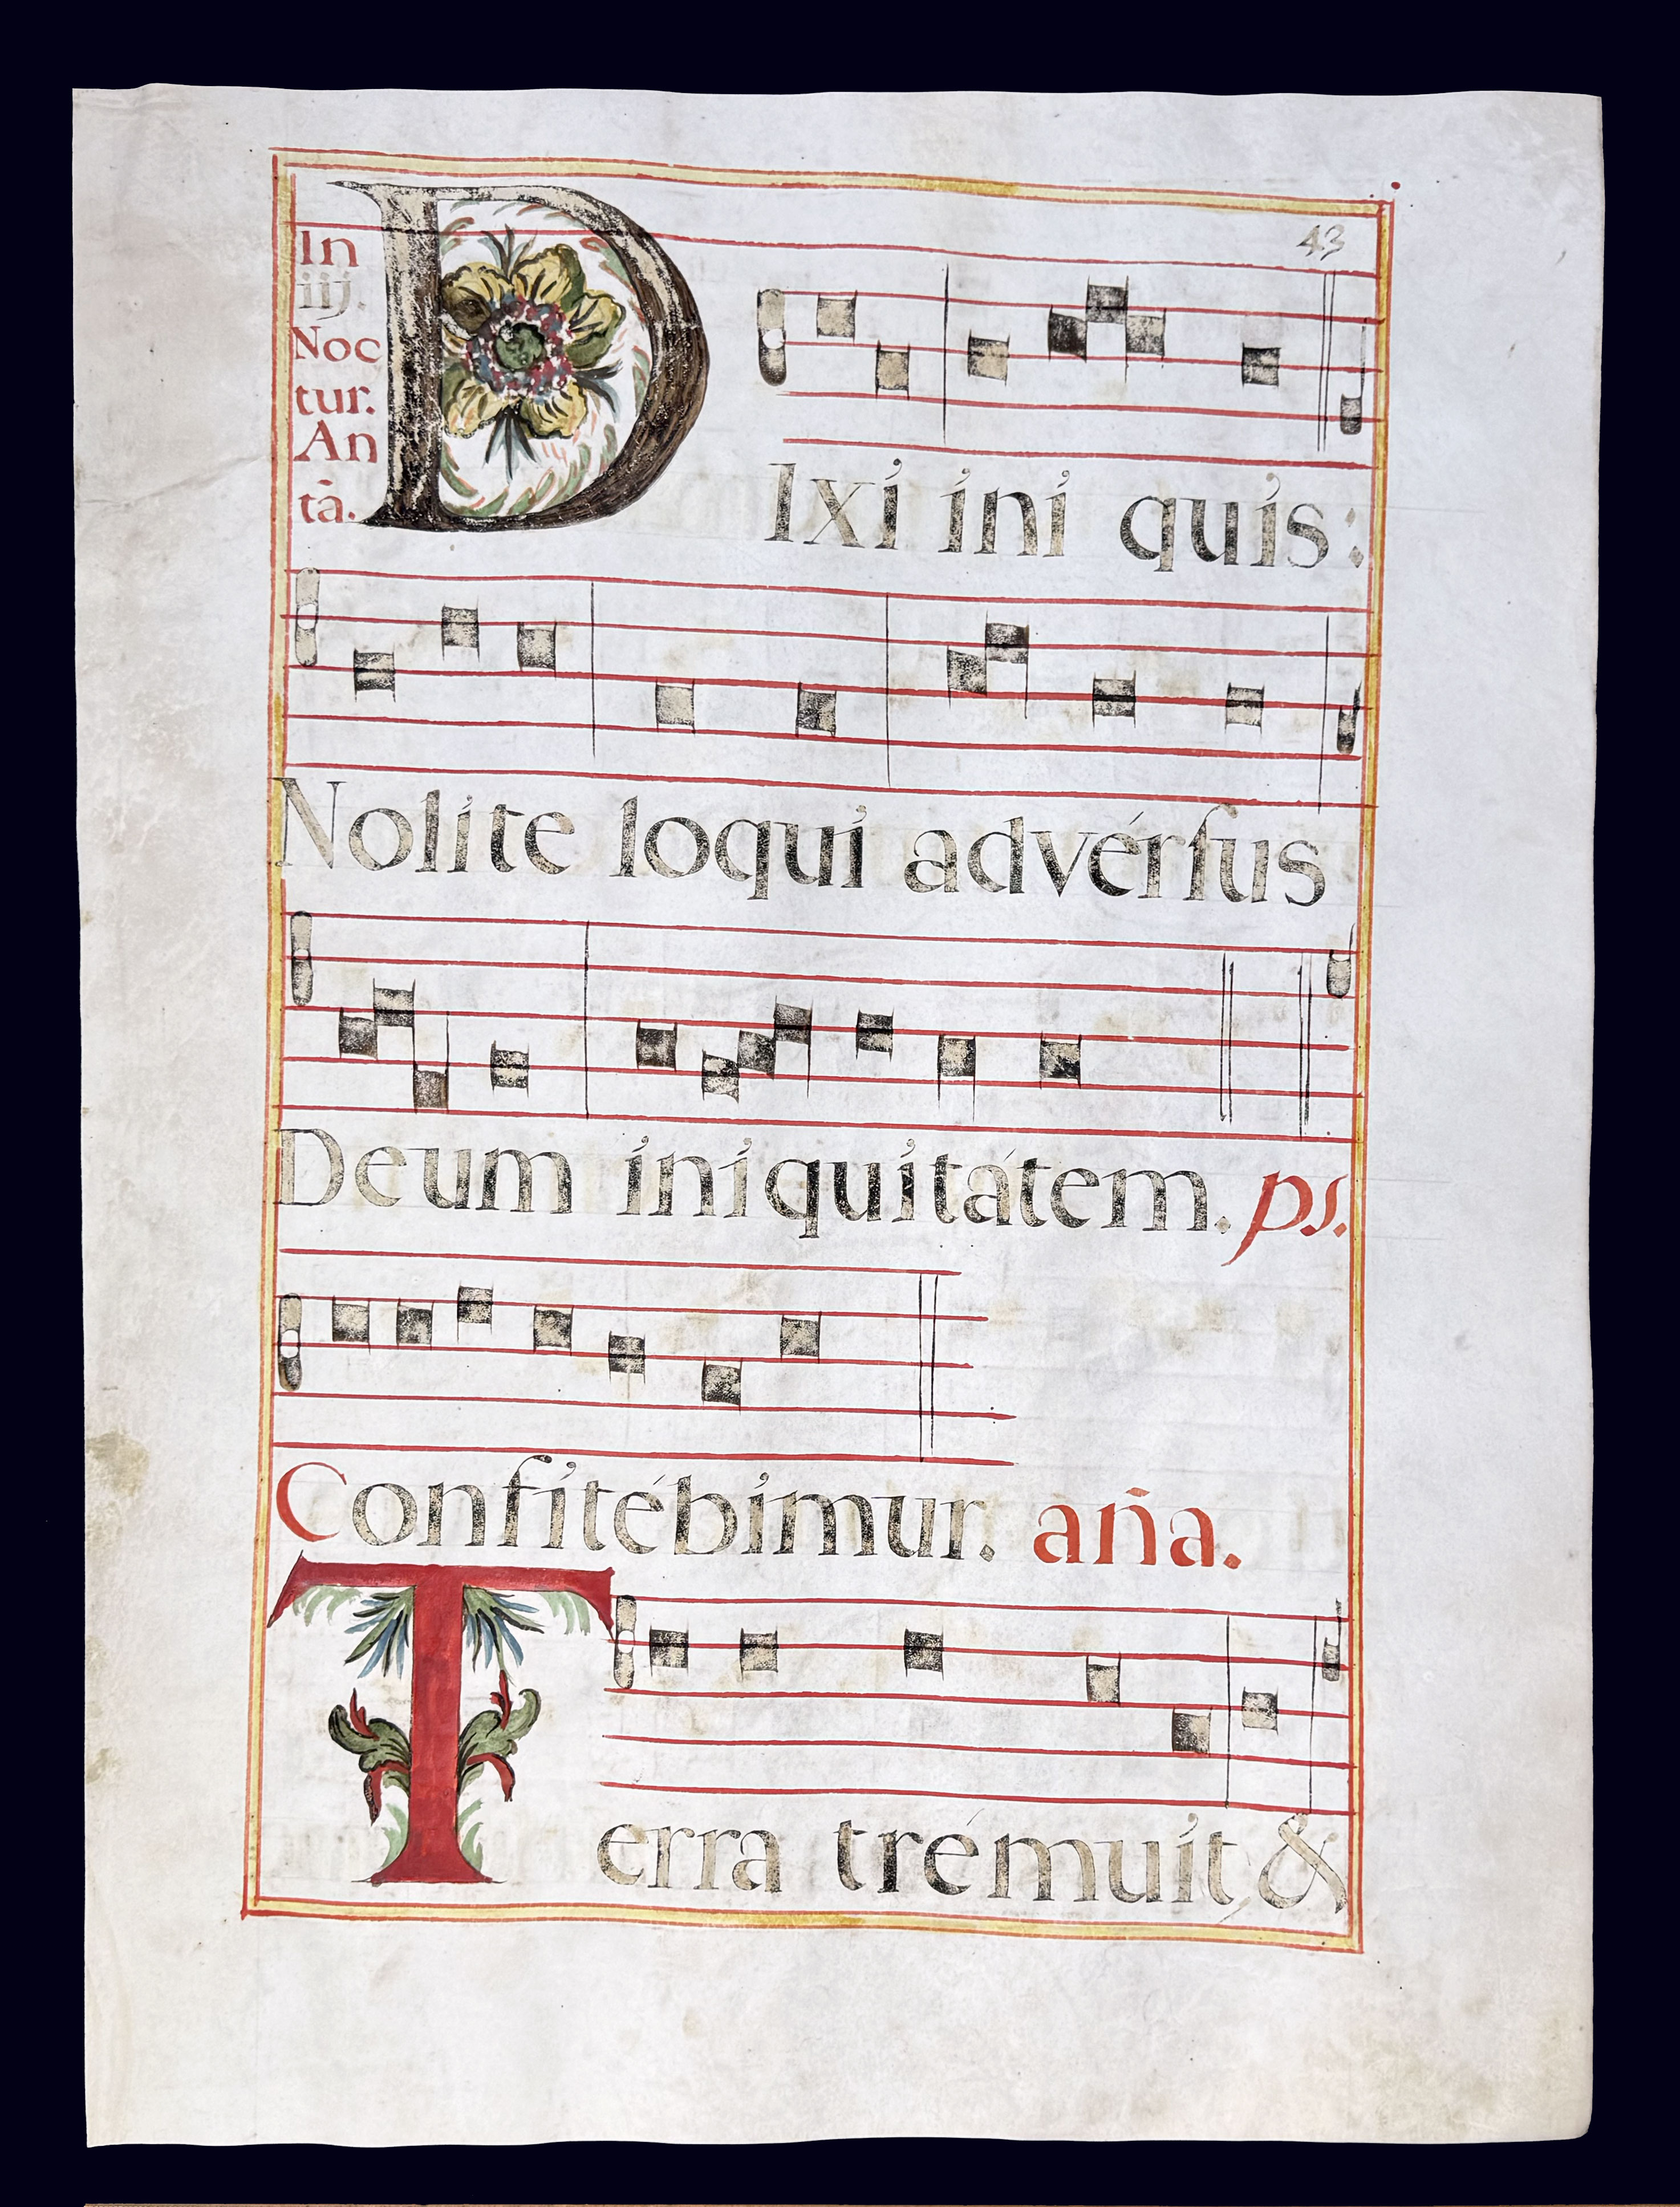 43
In
iij.
Noc
tur.
An
tā.
DIxi ini quis:
Nolite loqui advérſus
Deum iniquitátem. ps.
Confitébimur. aña.
Terra trémuit &